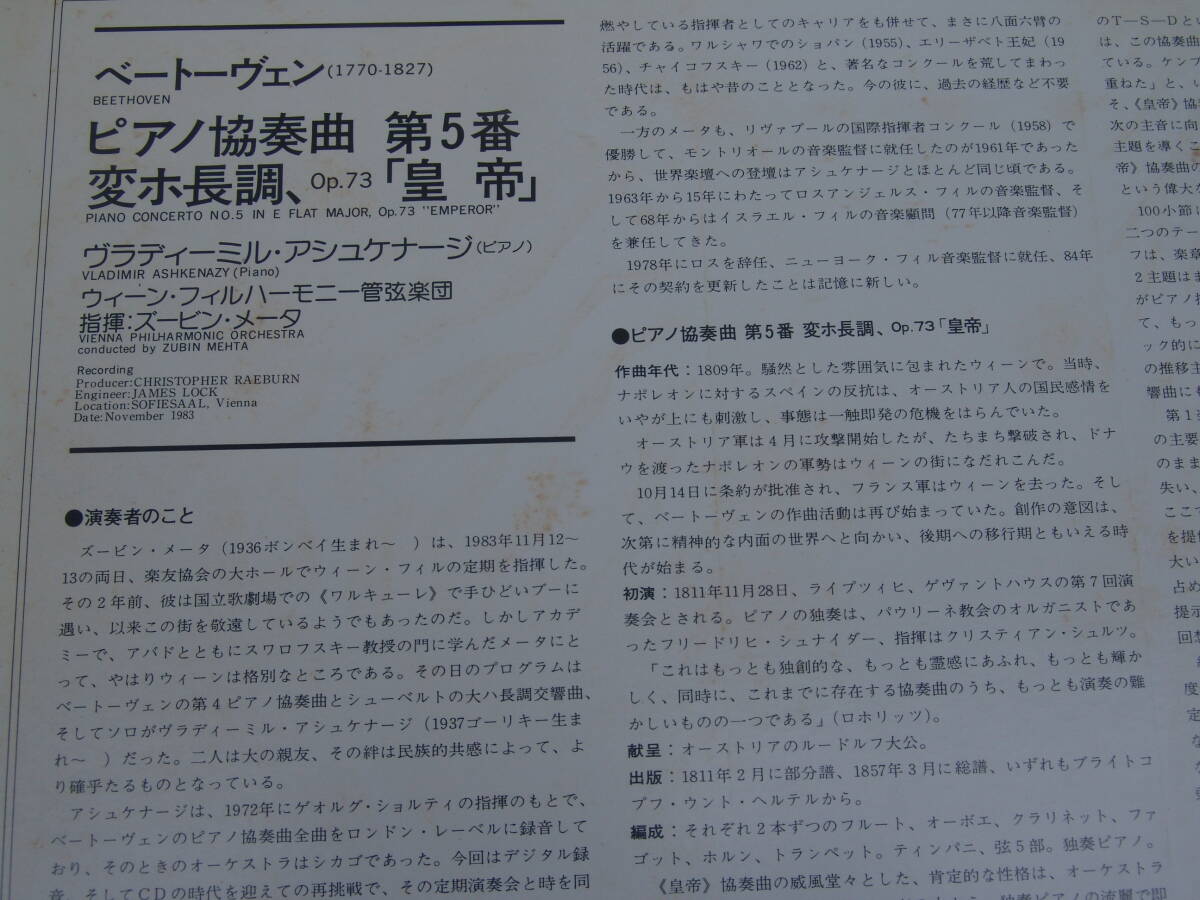 ベートーヴェン(1770-1827)
BEETHOVEN
ピアノ協奏曲 第5番
変ホ長調、Op.73「皇 帝」
PIANO CONCERTO NO.5 IN E FLAT MAJOR, Op.73 "EMPEROR"
ヴラディーミル・アシュケナージ(ピアノ)
VLADIMIR ASHKENAZY(Piano)
ウィーン・フィルハーモニー管弦楽団
指揮:ズービン・メータ
VIENNA PHILHARMONIC ORCHESTRA
conducted by ZUBIN MEHTA
Recording
Producer:CHRISTOPHER RAEBURN
Engineer:JAMES LOCK
Location:SOFIESAAL, Vienna
Date:November 1983
●演奏者のこと
ズービン・メータ(1936ボンベイ生まれ〜 )は、1983年11月12〜
13の両日、楽友協会の大ホールでウィーン・フィルの定期を指揮した。
その2年前、彼は国立歌劇場での《ワルキューレ》で手ひどいブーに
遇い、以来この街を敬遠しているようでもあったのだ。しかしアカデ
ミーで、アバドとともにスワロフスキー教授の門に学んだメータにと
って、やはりウィーンは格別なところである。その日のプログラムは
ベートーヴェンの第4ピアノ協奏曲とシューベルトの大ハ長調交響曲、
そしてソロがヴラディーミル・アシュケナージ(1937ゴーリキー生ま
れ〜 )だった。二人は大の親友、その絆は民族的共感によって、よ
り確乎たるものとなっている。
アシュケナージは、1972年にゲオルグ・ショルティの指揮のもとで、
ベートーヴェンのピアノ協奏曲全曲をロンドン・レーベルに録音して
おり、そのときのオーケストラはシカゴであった。今回はデジタル録
音、そしてCDの時代を迎えての再挑戦で、その定期演奏会と時を同
燃やしている指揮者としてのキャリアをも併せて、まさに八面六臂の
活躍である。ワルシャワでのショパン(1955)、エリーザベト王妃(19
56)、チャイコフスキー(1962)と、著名なコンクールを荒してまわっ
た時代は、もはや昔のこととなった。今の彼に、過去の経歴など不要
である。
一方のメータも、リヴァプールの国際指揮者コンクール(1958)で
優勝して、モントリオールの音楽監督に就任したのが1961年であった
から、世界楽壇への登壇はアシュケナージとほとんど同じ頃である。
1963年から15年にわたってロスアンジェルス・フィルの音楽監督、そ
して68年からはイスラエル・フィルの音楽顧問(77年以降音楽監督)
を兼任してきた。
1978年にロスを辞任、ニューヨーク・フィル音楽監督に就任、84年
にその契約を更新したことは記憶に新しい。
●ピアノ協奏曲 第5番 変ホ長調、Op.73「皇帝」
作曲年代:1809年。騒然とした雰囲気に包まれたウィーンで。当時、
ナポレオンに対するスペインの反抗は、オーストリア人の国民感情を
いやが上にも刺激し、事態は一触即発の危機をはらんでいた。
オーストリア軍は4月に攻撃開始したが、たちまち撃破され、ドナ
ウを渡ったナポレオンの軍勢はウィーンの街になだれこんだ。
10月14日に条約が批准され、フランス軍はウィーンを去った。そし
て、ベートーヴェンの作曲活動は再び始まっていた。創作の意図は、
次第に精神的な内面の世界へと向かい、後期への移行期ともいえる時
代が始まる。
初演:1811年11月28日、ライプツィヒ、ゲヴァントハウスの第7回演
奏会とされる。ピアノの独奏は、パウリーネ教会のオルガニストであ
ったフリードリヒ・シュナイダー、指揮はクリスティアン・シュルツ。
「これはもっとも独創的な、もっとも霊感にあふれ、もっとも輝か
しく、同時に、これまでに存在する協奏曲のうち、もっとも演奏の難
かしいものの一つである」(ロホリッツ)。
献呈:オーストリアのルードルフ大公。
出版:1811年2月に部分譜、1857年3月に総譜、いずれもブライトコ
プフ・ウント・ヘルテルから。
編成:それぞれ2本ずつのフルート、オーボエ、クラリネット、ファ
ゴット、ホルン、トランペット。ティンパニ、弦5部。独奏ピアノ。
《皇帝》協奏曲の威風堂々とした、肯定的な性格は、オーケストラ
のT—S—Dとい
は、この協奏曲
ている。ケンプ
重ねた」と、い
そ、《皇帝》協
次の主音に向
主題を導くこ
帝》協奏曲の
という偉大な
100小節に
二つのテー
フは、楽章
2主題はま
がピアノ
て、もっ
ック的に
の推移主
響曲にも
第1
の主要
のまま
失い、
ここで
を提
大い
占め
提示
回想
度
定
な